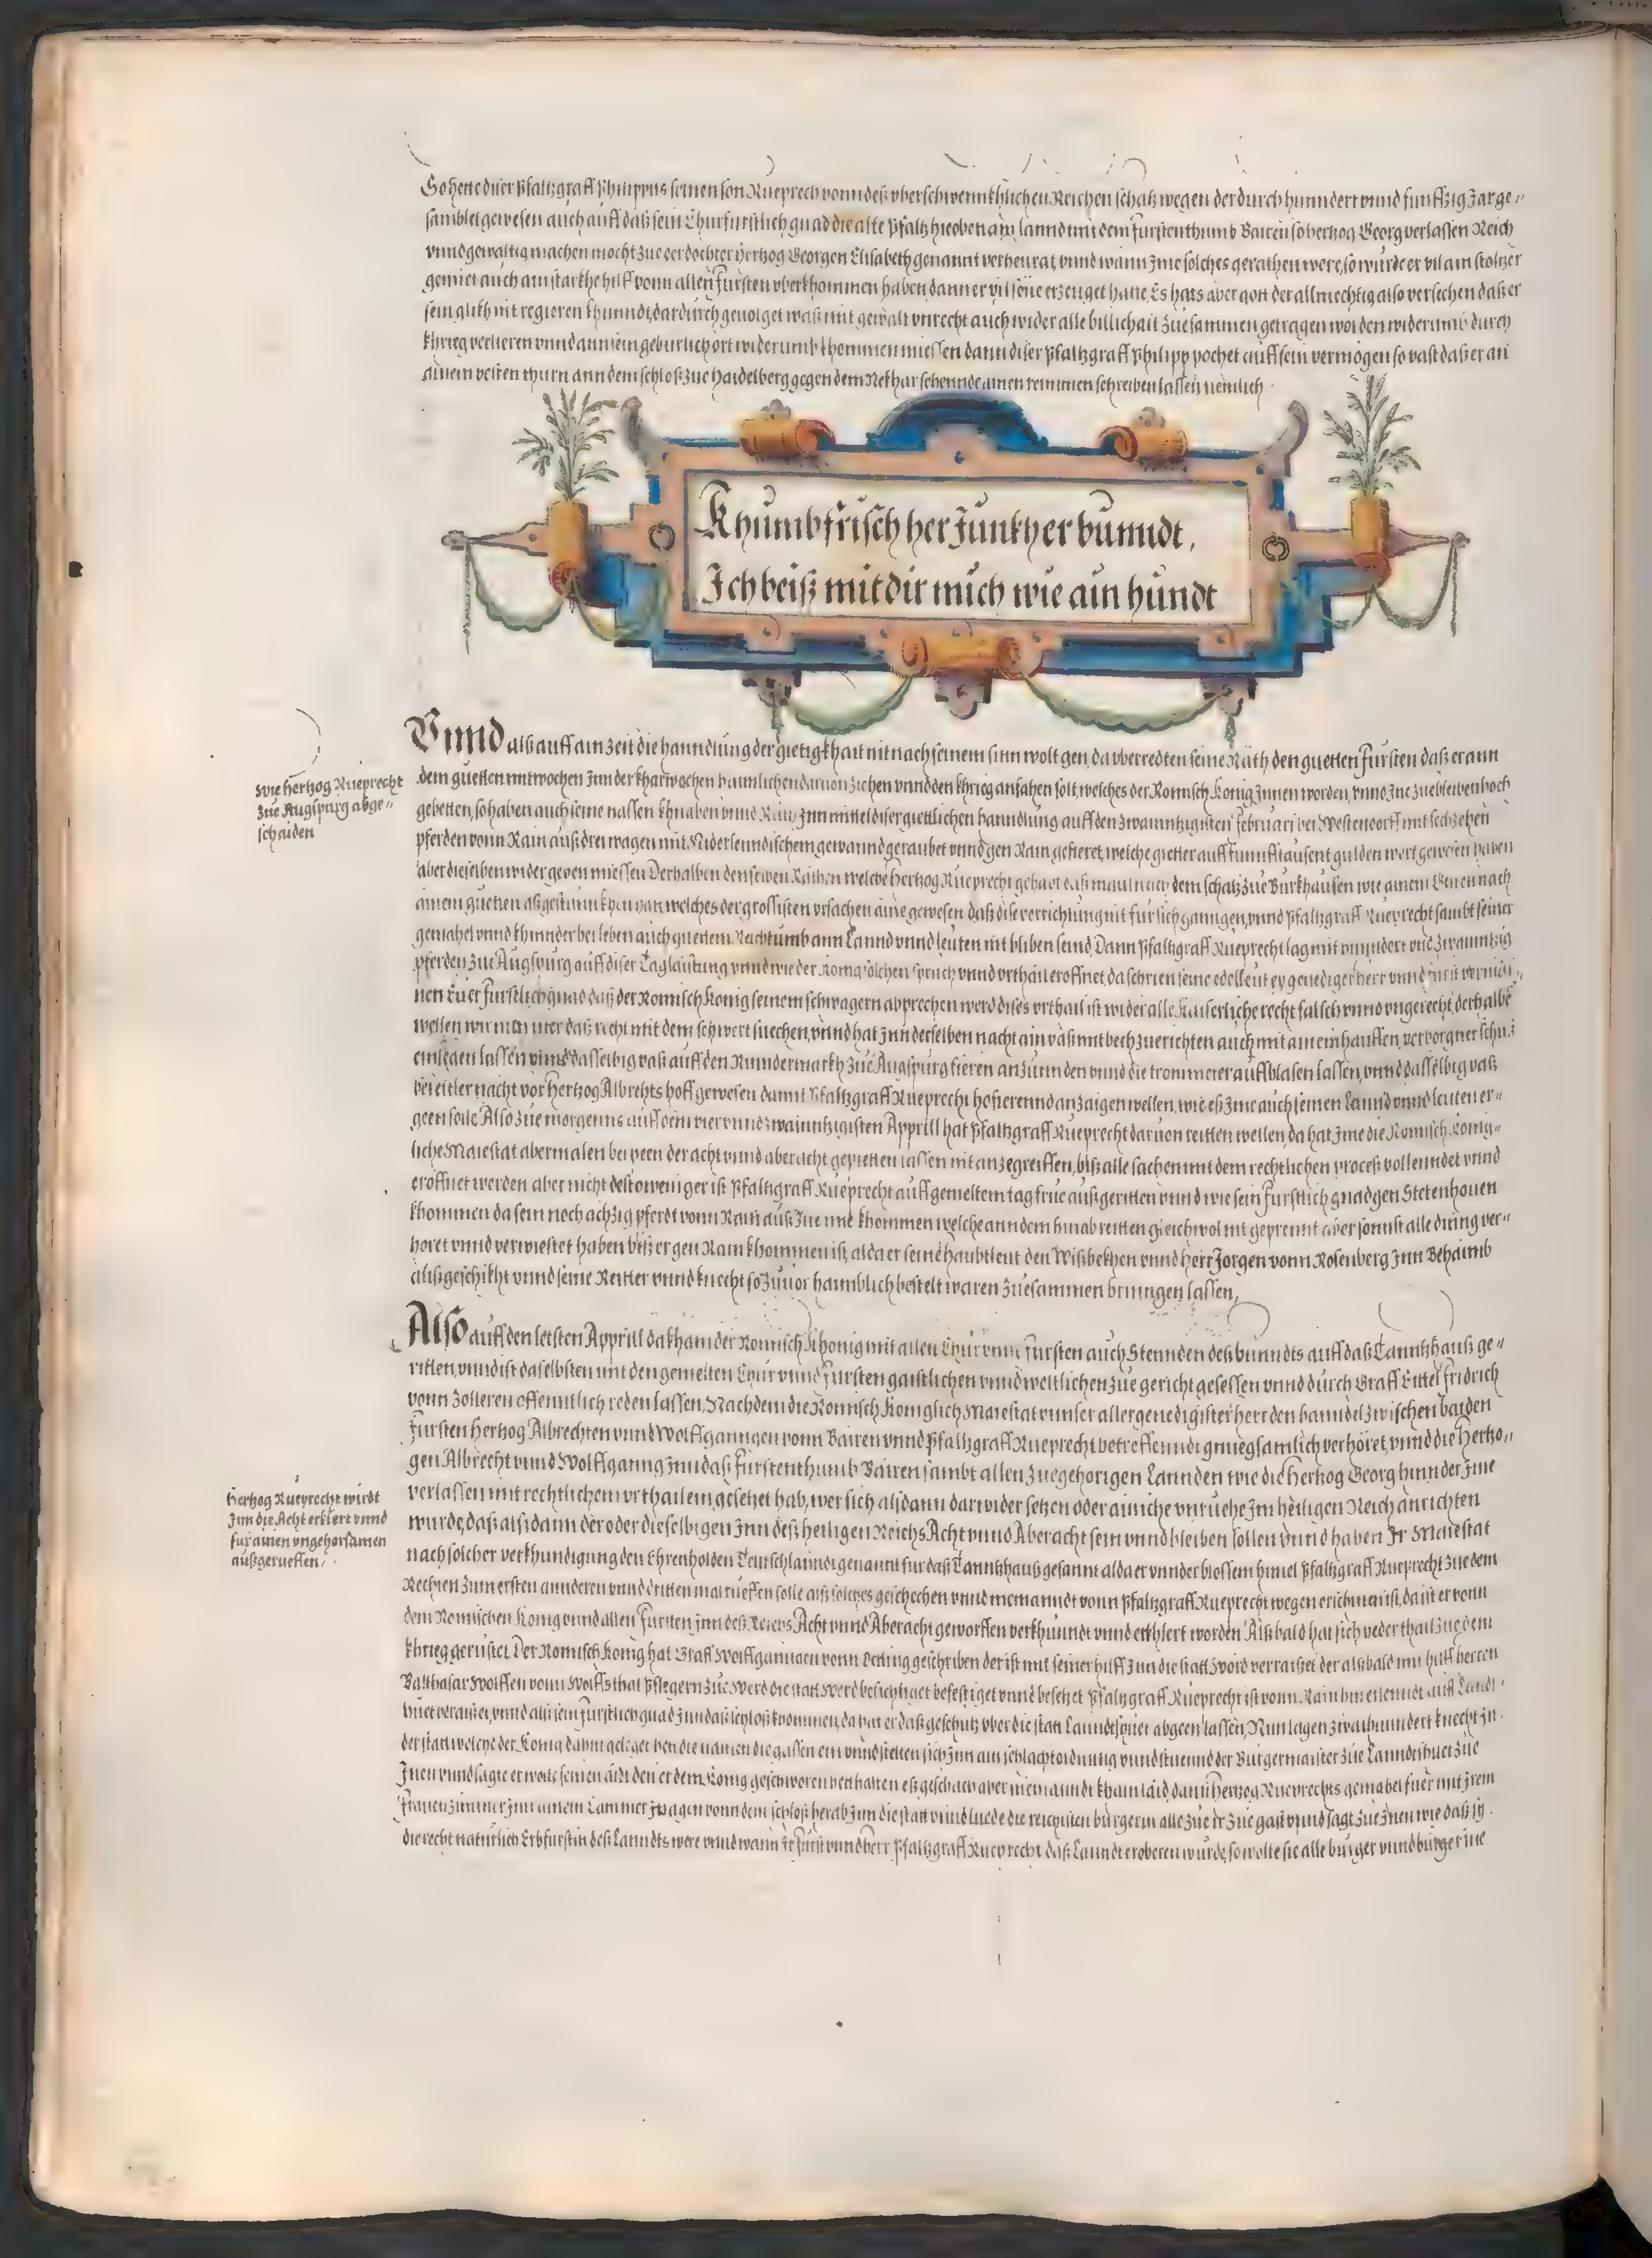 So hette diser Pfaltzgraff Philippus seinen son Rueprech vonn deß vberschwennkhlichen Reichen schatz wegen der durch hunndert vnnd funffzig Jar ge=
samblet gewesen auch auff daß sein Churfurstlich gnad die alte Pfaltz hieoben am lannd mit dem Furstenthumb Bairen so hertzog Georg verlassen Reich
vnnd gewaltig machen mocht zue der dochter hertzog Georgen Elisabeth genannt verheurat, vnnd wann Jme solches gerathen were, so wurde er vil ain stoltzer
gemiet auch ain starkhe hilff vonn allen Fursten vberkhommen haben, dann er vil söne erzeuget hatte, Es hats aber gott der allmechtig also versechen daß er
sein glikh nit regieren khunndt, dardurch geuolget waß mit gewalt vnrecht auch wider alle billichait zuesammen getragen worden widerumb durch
khrieg verlieren vnnd ann sein geburlich ort widerumb khommen miessen dann diser Pfaltzgraff Philipp pochet auff sein vermögen so vast daß er an
ainem vesten thurn ann dem schloß zue Haidelberg gegen dem Nekhar sehennde ainen reimmen schreiben lassen nemlich
Khumb frisch her Junkher bunndt,
Ich beiß mit dir mich wie ain hundt
Vnnd alß auff ain zeit die hanndlung der gietigkhait nit nach seinem sinn wolt gen, da vberredten seine Räth den guetten Fursten daß er ann
wie Hertzog Rueprecht
zue Augspurg abge=
schaiden
dem guetten mitwochen Jnn der kharwochen haimlichen daruon ziehen vnnd den khrieg anfahen solt, welches der Romisch Konig Jnnen worden, vnnd Jne zue bleiben hoch
gebetten, so haben auch seine nassen khnaben vnnd Jnn mittel diser giettlichen hanndlung auff den zwainntzigisten Februari bei Westendorff mit sechzehen
pferden vonn Rain auß drei wagen mit Niderlenndischem gewannd geraubet vnnd gen Rain gefieret, welche gietter auff funnfftausent gulden wert gewesen haben
aber dieselben wider geben miessen Derhalben den selben Räthen welche Hertzog Rueprecht gehabt daß maul nach dem schatz zue Burkhausen wie ainem nach
ainem guetten hatt welches der grossisten vrsachen aine gewesen daß dise verrichtung nit fur sich ganngen, vnnd Pfaltzgraff Rueprecht sambt seiner
gemahel vnnd khinnder bei leben auch guettem Reichtumb ann Lannd vnnd leuten nit bliben seind, Dann Pfaltzgraff Rueprecht lag mit hunndert vnd zwainntzig
pferden zue Augspurg auff diser Taglaistung vnnd wie der Konig sölchen spruch vnnd vrthail eroffnet, da schrien seine edelleut ey genediger herr vnnd Furst
nen Euer Furstlich gnad daß der Romisch Konig seinem schwagern absprechen werd dises vrthail ist wider alle Kaiserliche recht falsch vnnd vngerecht, derhalbe
wellen wir daß recht mit dem schwert suechen, vnnd hat Jnn derselben nacht ain vaß mit bech zuerichten auch mit ainem hauffen verborgner schuß
einlegen lassen vnnd dasselbig vaß auff den Rinndermarkh zue Augspurg fieren anzunnden vnnd die trommeter auffblasen lassen, vnnd dasselbig vaß
bei eitler nacht vor Hertzog Albrechts hoff gewesen damit Pfaltzgraff Rueprecht hofieren vnd anzaigen wellen, wie eß Jme auch seinen Lannd vnnd leuten er=
geen solle Also zue morgenns auff dem vier vnnd zwainntzigisten Apprill hat Pfaltzgraff Rueprecht daruon reitten wellen, da hat Jme die Romisch König=
liche Maiestat abermalen bei peen der acht vnnd aberacht gepietten lassen nit anzegreiffen, biß alle sachen mit dem rechtlichen proceß vollenndet vnnd
eröffnet werden aber nicht destoweniger ist Pfaltzgraff Rueprecht auff gemeltem tag frue außgeritten vnnd wie sein Furstlich gnad gen Stetenhouen
khommen da sein noch achzig pferdt vonn Rain auß zue ime khommen welche ann dem hinab reitten gleichwol nit geprennt aber sonnst alle dinng ver=
horet vnnd verwiestet haben biß er gen Rain khommen ist, alda er seine haubtleut den Wißbekhen vnnd herr Jorgen vonn Rosenberg Jnn Behaimb
außgeschikht vnnd seine Reitter vnnd knecht so zuuor haimblich bestelt waren zuesammen bringen lassen,
Also auff den letsten Apprill da kham der Romisch Khonig mit allen Chur vnnd Fursten auch Stennden deß bunndts auff daß Tanntzhauß ge=
ritten, vnnd ist daselbsten mit den gemelten Chur vnnd Fursten gaistlichen vnnd weltlichen zue gericht gesessen vnnd durch Graff Eittel Fridrich
vonn Zolleren offenntlich reden lassen, Nachdem die Romisch Koniglich Maiestat vnnser allergenedigister herr den hanndel zwischen baiden
Fursten Hertzog Albrechten vnnd Wolffganngen vonn Bairen vnnd Pfaltzgraff Rueprecht betreffenndt gnuegsamlich verhöret, vnnd die Hertzo=
gen Albrecht vnnd Wolffganng Jnn daß Furstenthumb Bairen sambt allen zuegehorigen Lannden wie die Hertzog Georg hinnder Jme
Hertzog Rueprecht wirdt
Jnn die Acht erklert vnnd
fur ainen vngehorsamen
außgerueffen
verlassen mit rechtlichem vrthail eingesetzet hab, wer sich alßdann darwider setzen oder ainiche vnrueche Jm heiligen Reich anrichten
wurde, daß alßdann der oder dieselbigen Jnn deß heiligen Reichs Acht vnnd Aberacht sein vnnd bleiben sollen vnnd haben Jr Maiestat
nach solcher verkhundigung den Ehrenholden Teutschlanndt genannt fur daß Tanntzhauß gesannt alda er vnnder blossem himel Pfaltzgraff Rueprecht zue dem
Rechten zum ersten annderen vnnd dritten mal rueffen solle alß solches geschechen vnnd niemanndt vonn Pfaltzgraff Rueprecht wegen erschinen ist, da ist er vonn
dem Romischen Konig vnnd allen Fursten Jnn deß Reichs Acht vnnd Aberacht geworffen verkhunndt vnnd erkhlert worden Alßbald hat sich yeder thail zue dem
khrieg gerüstet, Der Romisch Konig hat Graff Wolffganngen vonn Oetting geschriben der ist mit seiner hilff Jnn die statt Wörd verraiset der alßbald mit hilff herren
Balthasar Wolffen vonn Wolffsthal Pflegern zue Werd die statt Werd besichtiget befestiget vnnd besetzet Pfaltzgraff Rueprecht ist vonn Rain hin auff Landt=
huet veraiset, vnnd alß sein Furstlich gnad Jnn daß schloß khommen, da hat er daß geschutz vber die statt Lanndtshuet abgeen lassen, Nun lagen zwaihunndert knecht Jn
der statt welche der Konig dahin geleget hett die namen die gassen ein vnnd stelten sich Jnn ain schlachtordnung vnnd stuennd der Burgermaister zue Lanndtshuet zue
Jnen vnnd sagte er wolte seinen aidt den er dem Konig geschworen hett halten eß geschach aber niemanndt khain laid dann Hertzog Rueprechts gemahel fuer mit Jrem
Frauenzimmer Jnn ainem Cammerwagen vonn dem schloß herab Jnn die statt vnnd luede die reichisten burgerin alle zue Jr zue gast vnnd sagt zue Jnen wie daß sy
die recht naturlich Erbfurstin deß Lanndts were vnnd wann Jr Furst vnnd herr Pfaltzgraff Rueprecht daß Lanndt eroberen wurde, so wolte sie alle burger vnnd burgerine